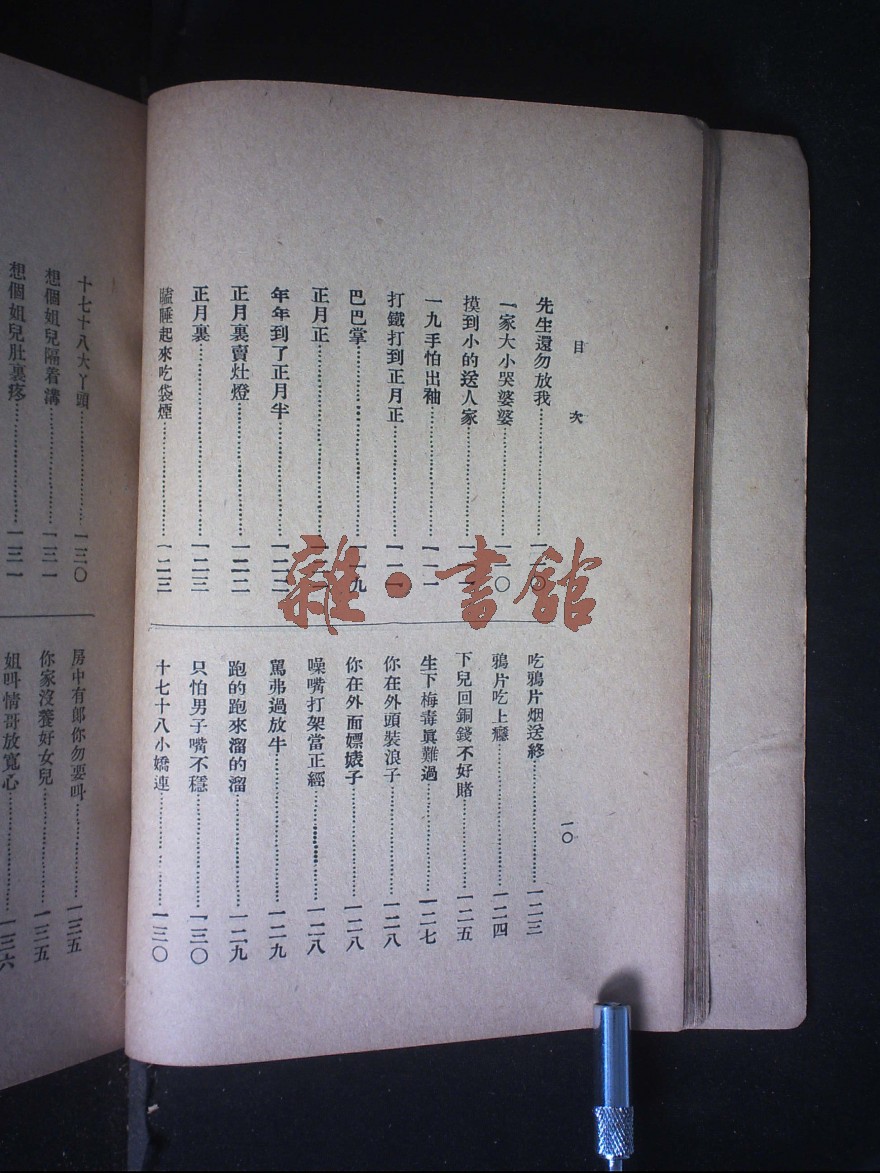 目次
先生還勿放我⋯⋯一二〇
一家大小哭婆婆⋯⋯一一〇
摸到小的送人家⋯⋯一
一九手怕出袖⋯⋯一一一
打鐵打到正月正⋯⋯一
巴巴掌⋯⋯一一九
正月正⋯⋯一
年年到了正月半⋯⋯一二二
正月裏賣灶燈⋯⋯一二二
正月裏⋯⋯一二三
瞌睡起來吃袋煙⋯⋯一二三
吃鴉片烟送終⋯⋯一二三
鴉片吃上癮⋯⋯一二四
下兒回銅錢不好賭⋯⋯一二五
生下梅毒眞難過⋯⋯一二七
你在外頭裝浪子⋯⋯一二八
你在外面嫖婊子⋯⋯一二八
噪嘴打架當正經⋯⋯一二八
罵弗過放牛⋯⋯一二九
跑的跑來溜的溜⋯⋯一二九
只怕男子嘴不穩⋯⋯一三〇
十七十八小嬌連⋯⋯一三〇
一〇
十七十八大丫頭⋯⋯一三〇
想個姐兒隔着溝⋯⋯一三一
想個姐兒肚裏疼⋯⋯一三一
房中有郎你勿要叫⋯⋯一三五
你家沒養好女兒⋯⋯一三五
姐叫情哥放寬心⋯⋯一三六
雜·書館